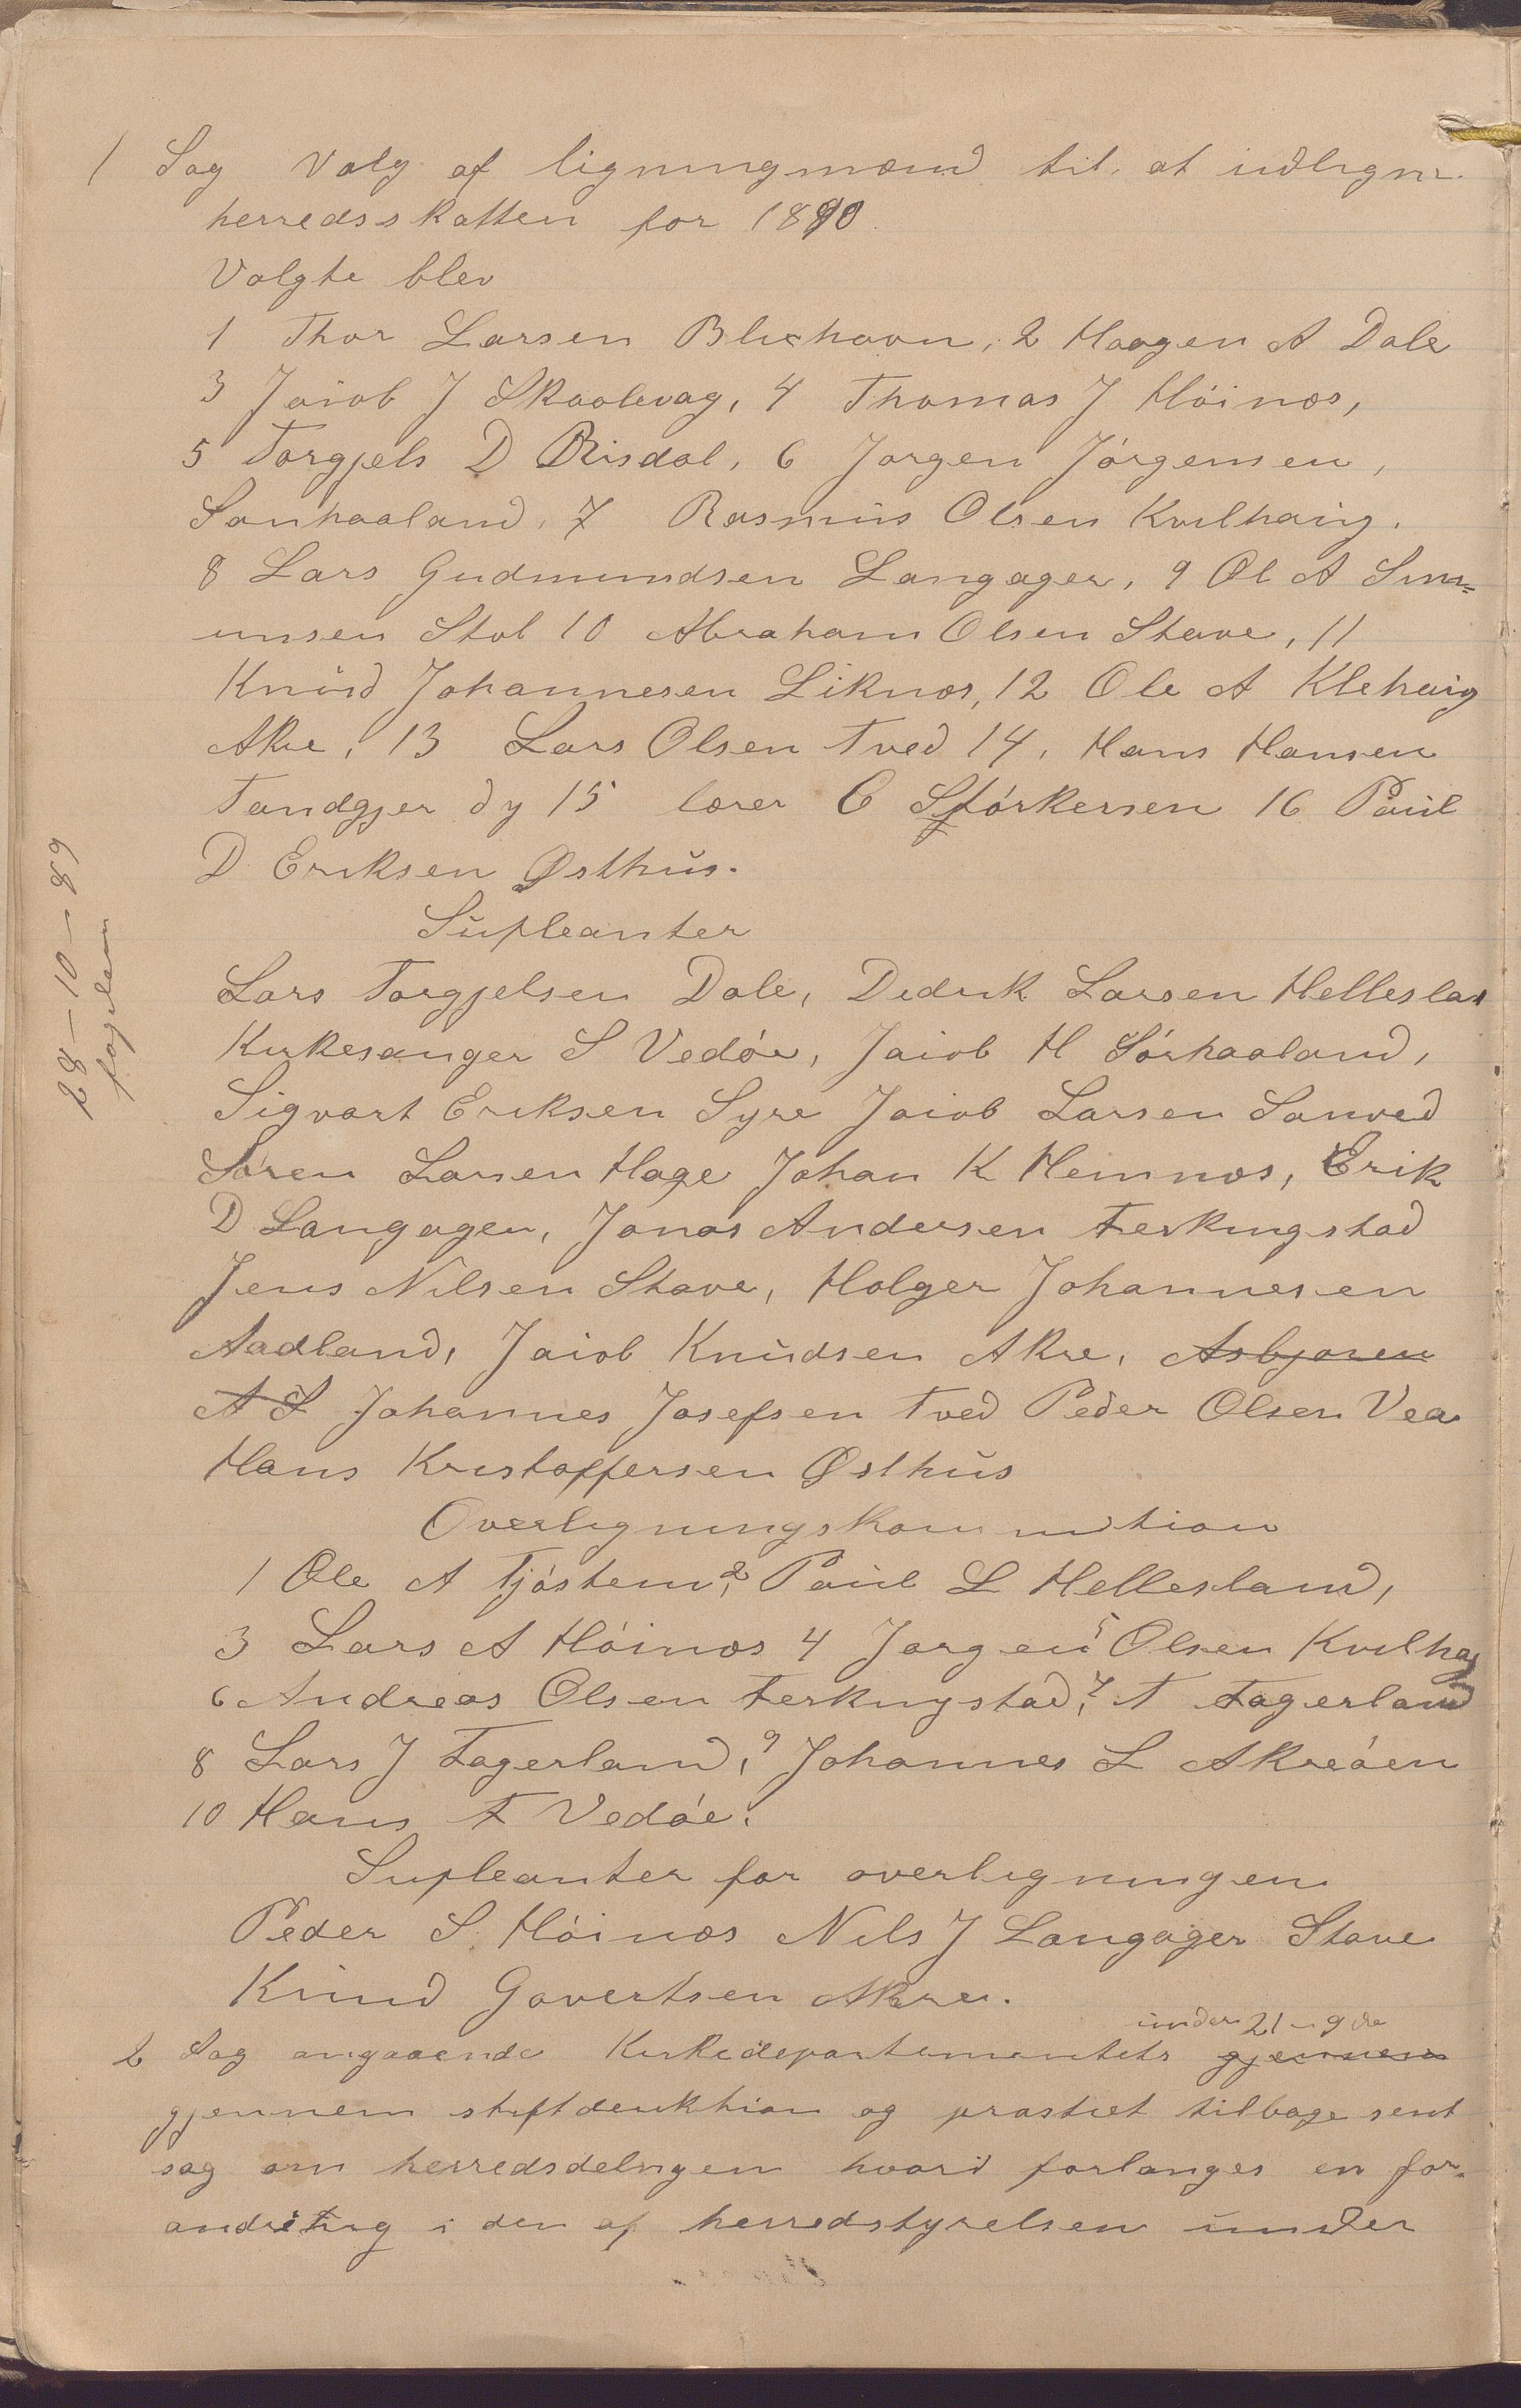 1 Sag Valg af ligningmænd til at udligne
herredsskatten for 1890
Valgte blev
1 Thor Larsen Blichavn, 2 Haagen A Dale
3 Jaiob J Skaalevag, 4 Thomas J Höinæs,
5 Torgjels D Risdal, 6 Jorgen Jörgensen,
Sanhaaland, 7 Rasmus Olsen Kvilhaug.
8 Lars Gudmundsen Langager, 9 Ol A Sim=
unsen Stol 10 Abraham Olsen Stave, 11
Knud Johannesen Liknæs, 12 Ole A Klehaug
Akre, 13 Lars Olsen Tved 14, Hans Hansen
Tandgjer dy 15 lærer C Störkersen 16 Paul
D Eriksen Østhus.
Supleanter
Lars Torgjelsen Dale, Didrik Larsen Helleslan
Kirkesanger S Vedöe, Jaiob H Sörhaaland,
Sigvart Eriksen Syre Jaiob Larsen Sanved
Sören Larsen Hage Johan K Hemnæs, Erik
D Langager, Jonas Andersen Ferkingstad
Jens Nilsen Stave, Holger Johannesen
Aadland, Jaiob Knudsen Akre, Asbjoren
A S Johannes Josefsen Tved Peder Olsen Vea
Hans Kristoffersen Østhus
Overligningskommition
1 Ole A Tjöstem, 2 Paul L Hellesland,
3 Lars A Höinæs 4 Jorgen 5 Olsen Kvilhaug
6 Andreas Olsen Ferkingstad, 7 T Fagerland
8 Lars J Fagerland, 9 Johannes L Akreöen
10 Hans F Vedöe.
Supleanter for overligningen
Peder S. Höinæs Nils J Langager Stave
Knud Govertsen Akre.
under 21-9
2 Sag angaaende Kirkedepartementets gjennem
gjennem stiftdirektion og prostiet tilbage sent
sag om herredsdelngen hvori forlanges en for-
andring i den af herredstyrelsen under
28-10-89